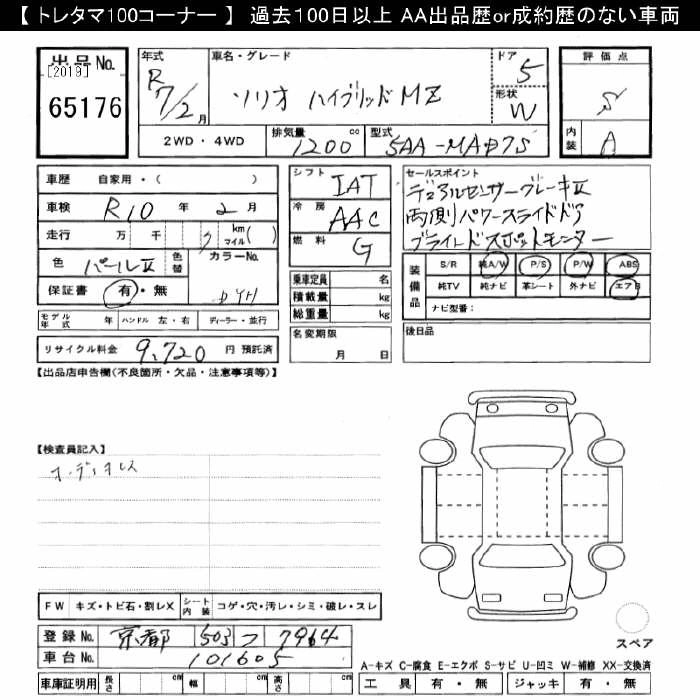 【 トレタマ100コーナー 】 過去100日以上 AA出品歴or成約歴のない車両
出品 No.
[2019]
65176
年式 R 7/2 月
車名・グレード
ソリオ ハイブリッド MZ
ドア 5
形状 W
評価点
S
内装 A
2WD ・ 4WD
排気量 1200 cc
型式 5AA-MAD7S
車歴 自家用・( )
車検 R10 年 2 月
走行 万 千 km マイル ( )
色 パールII 色替 カラーNo.
保証書 有・無
モデル年式 年 ハンドル 左・右 ディーラー・並行
リサイクル料金 9,720 円 預託済
シフト IAT
冷房 AAC
燃料 G
乗車定員 名
積載量 kg
総重量 kg
名変期限 月 日
セールスポイント
デュアルセンサーブレーキII
両側パワースライドドア
ブラインドスポットモニター
装備品
S/R 純A/W P/S P/W ABS
純TV 純ナビ 革シート 外ナビ エアB
ナビ型番：
後日品
【出品店申告欄(不良箇所・欠品・注意事項等)】
【検査員記入】
オーディオレス
FW キズ・トビ石・割レX シート内装 コゲ・穴・汚レ・シミ・破レ・スレ
登録No. 京都 503 フ 7964
車台No. 101605
車庫証明用 長さ cm 幅 cm 高さ cm
スペア
A-キズ C-腐食 E-エクボ S-サビ U-凹ミ W-補修 XX-交換済
工具 有・無 ジャッキ 有・無